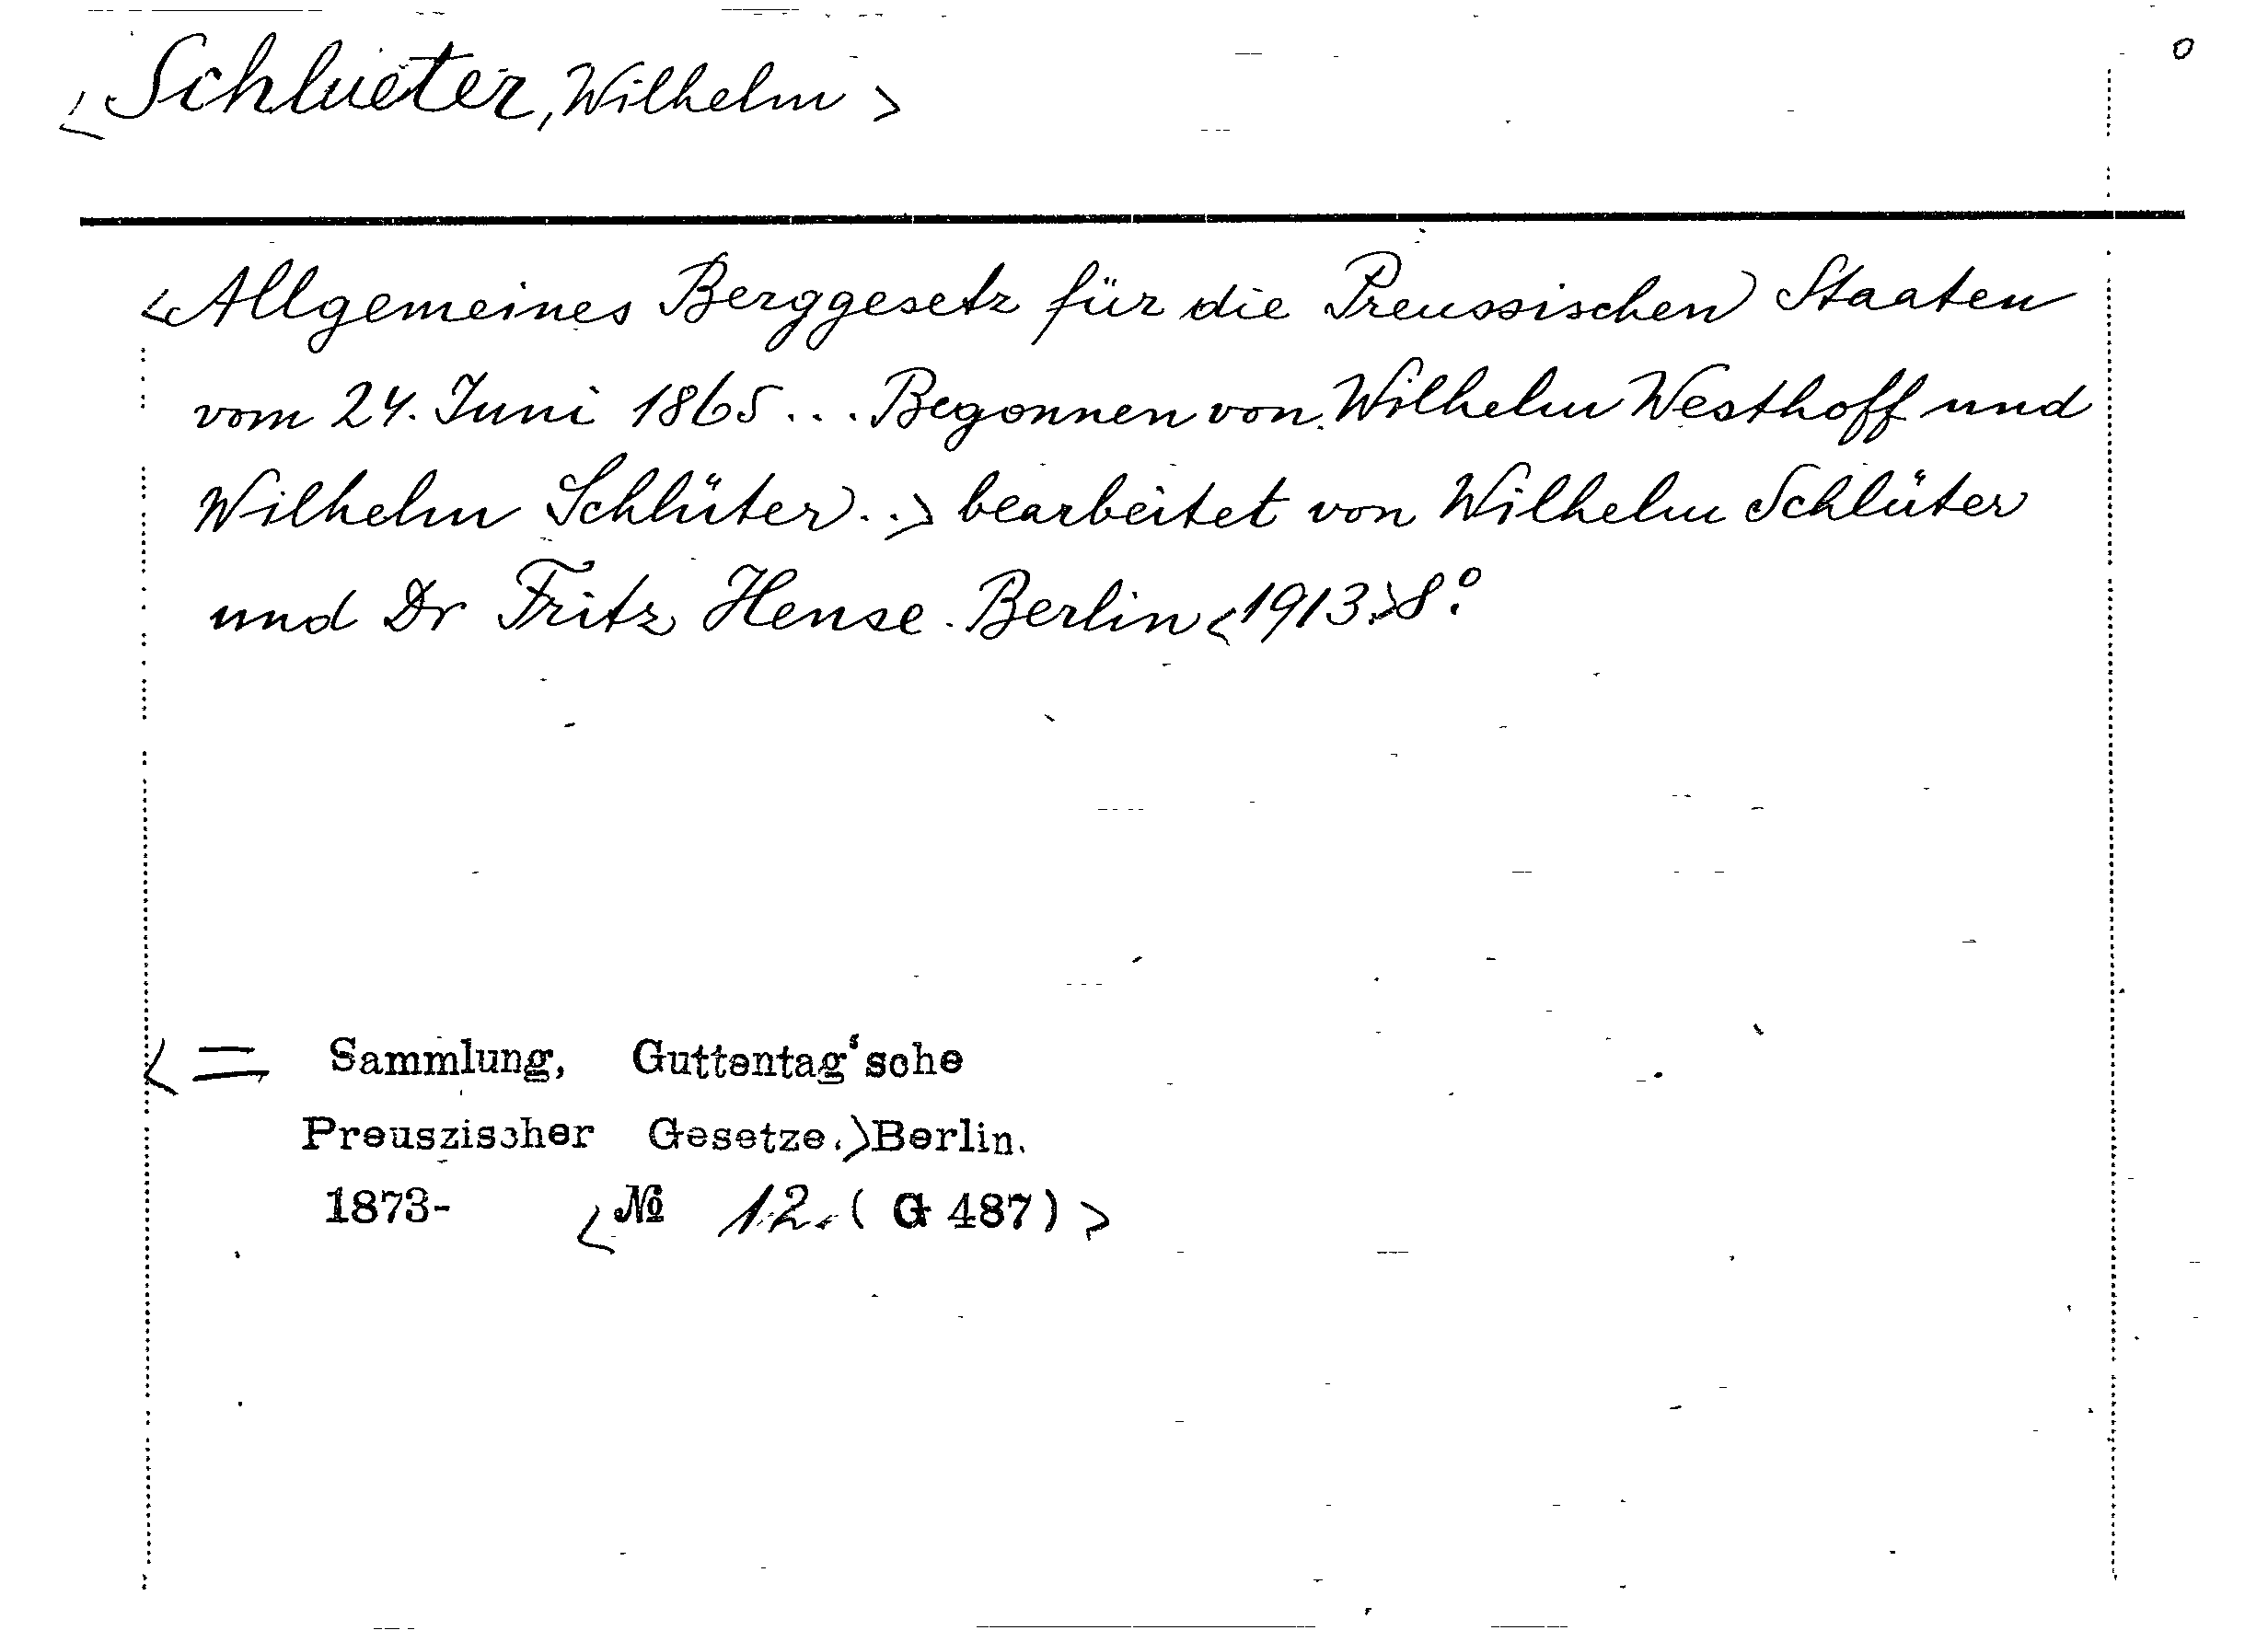 <Schlueter, Wilhelm> o
<Allgemeines Berggesetz für die Preussischen Staaten
vom 24. Juni 1865... Begonnen von Wilhelm Westhoff und
Wilhelm Schlüter..> bearbeitet von Wilhelm Schlüter
und Dr Fritz Hense. Berlin <1913.> 8º.
<= Sammlung, Guttentag'sche
Preuszischer Gesetze.> Berlin.
1873- <№ 12. (G 487)>